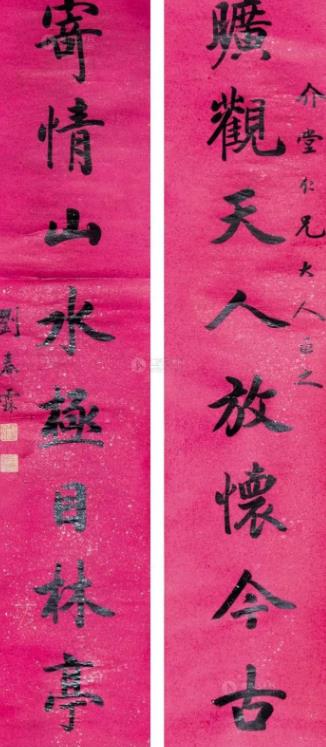 介堂仁兄大人正之
曠觀天人放懷今古
寄情山水極目林亭
劉春霖